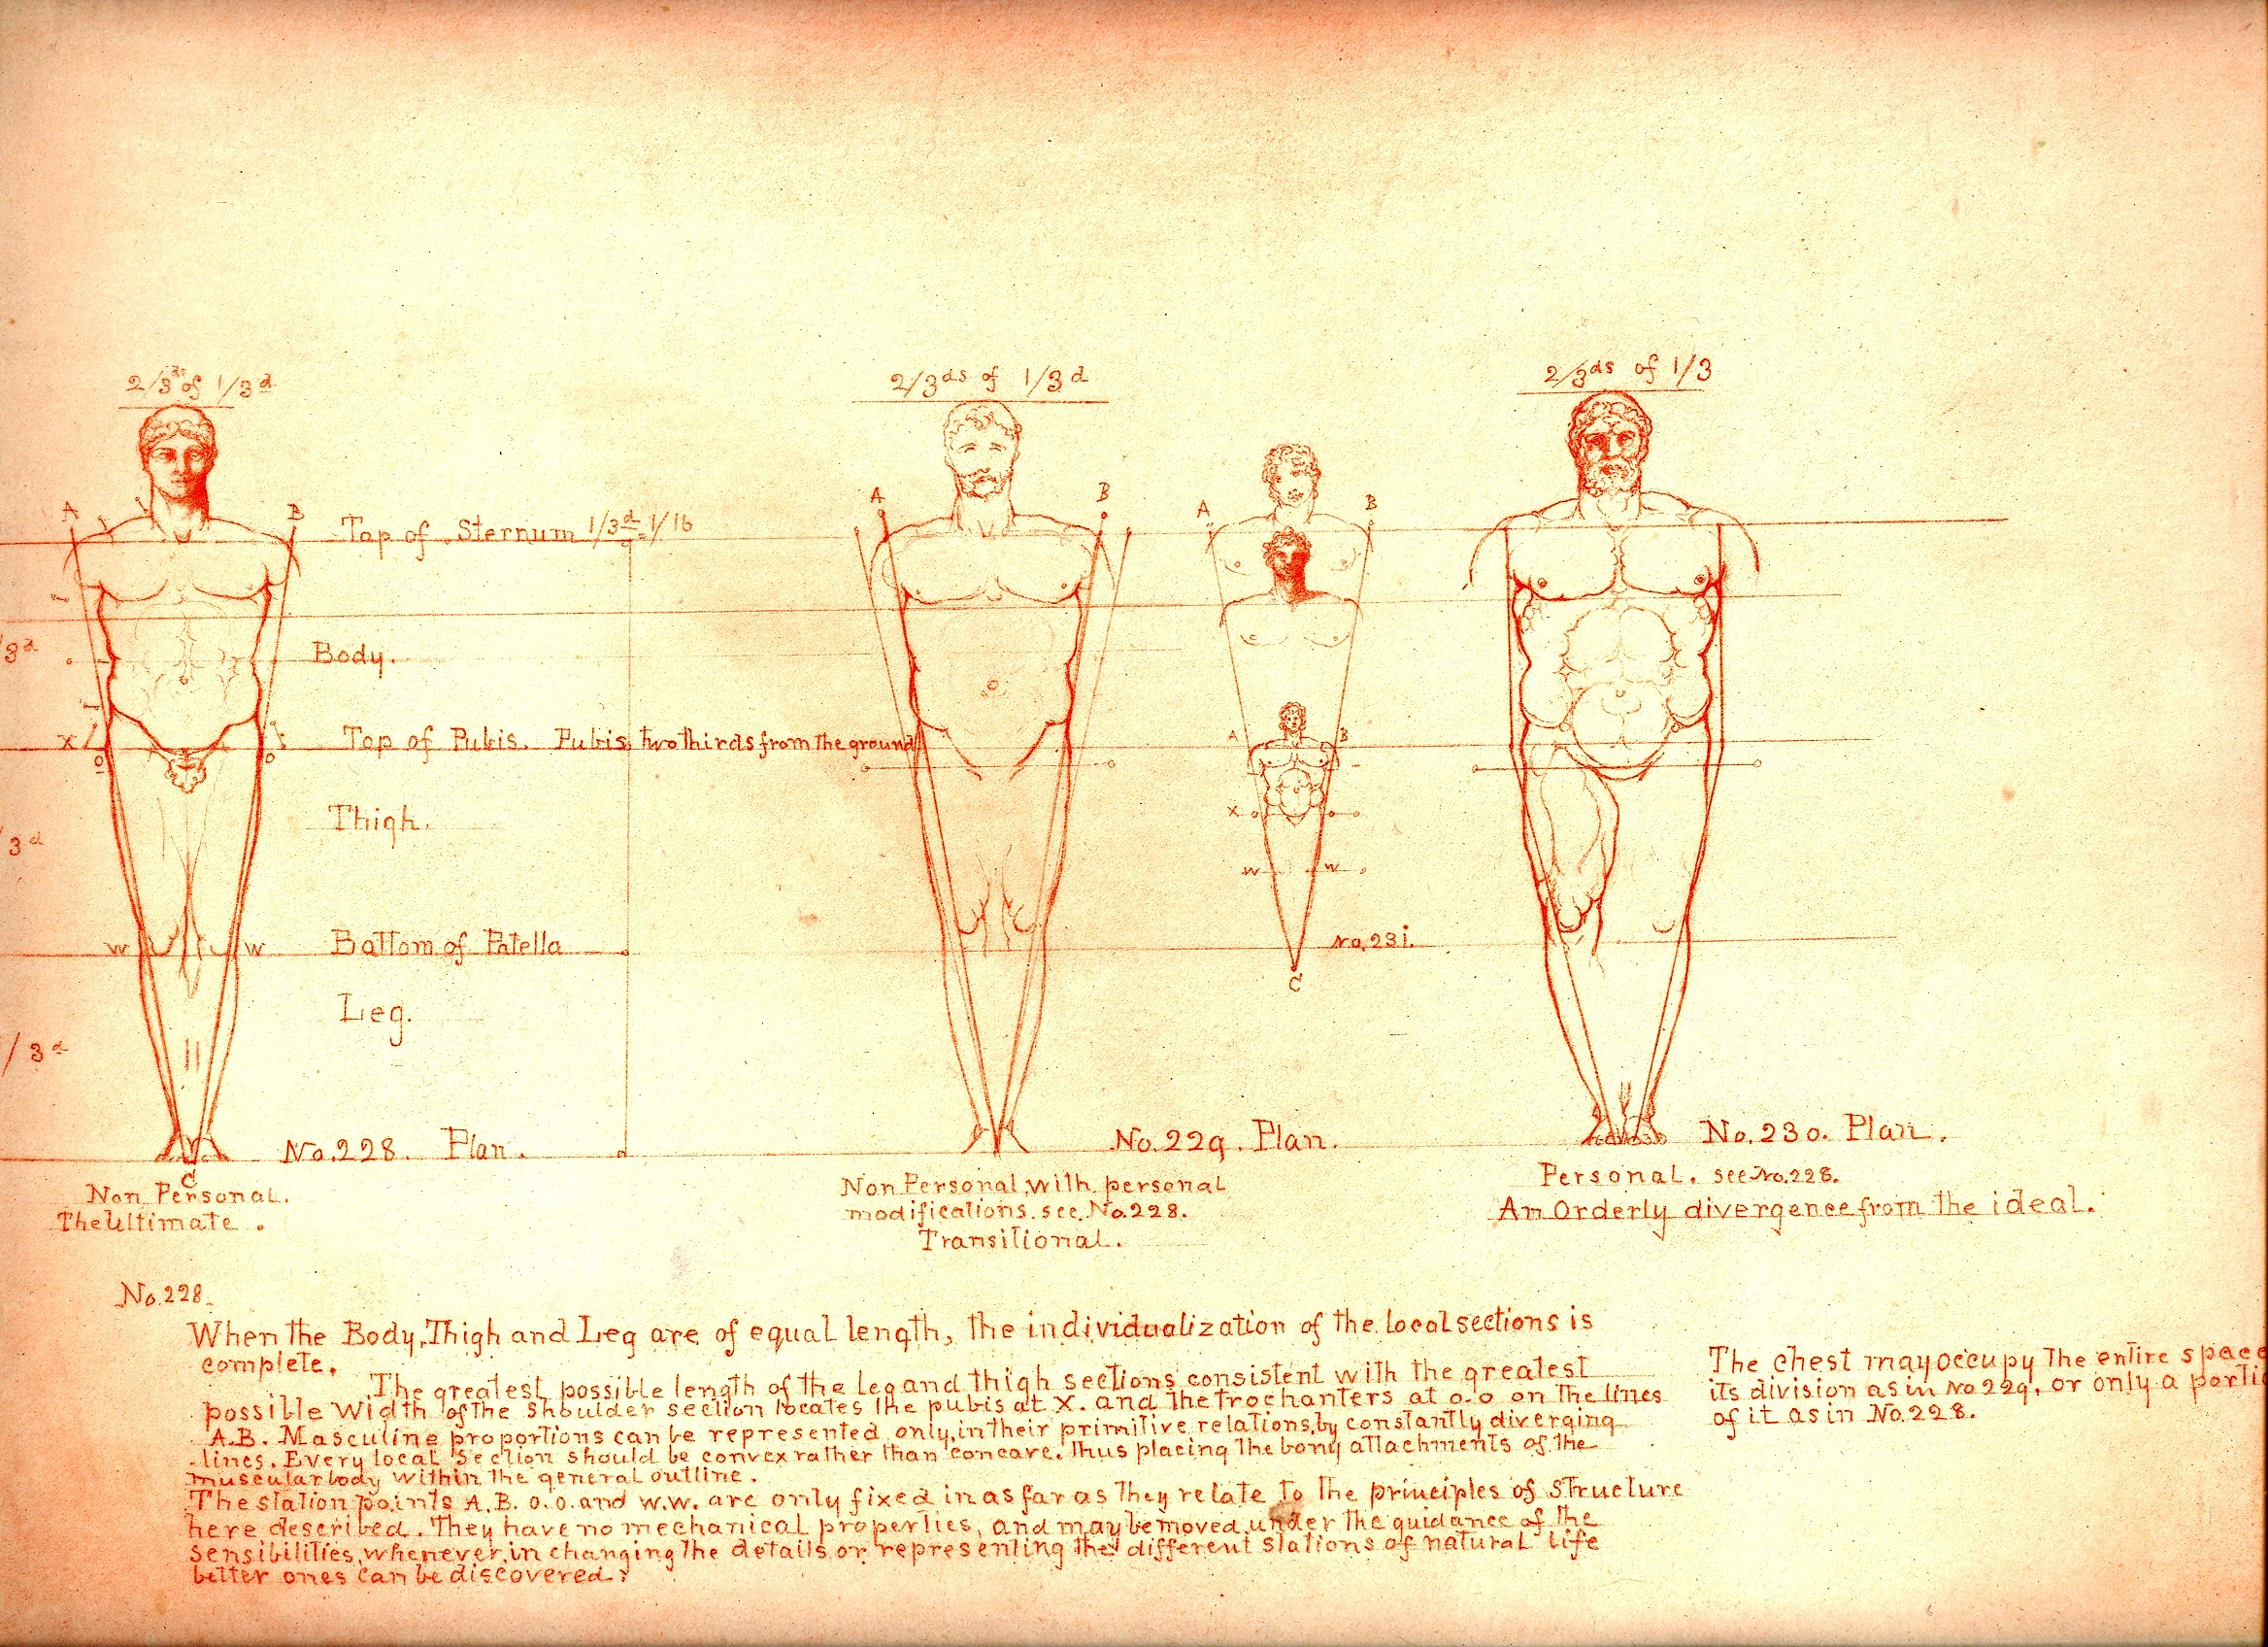 2/3ds of 1/3d
2/3ds of 1/3d
2/3ds of 1/3
A
B
A
B
A
B
Top of Sternum 1/3d = 1/16
3d
Body.
X
o
o
Top of Pubis. Pubis two thirds from the ground
A
B
X
Thigh.
3d
w
w
w
w
Bottom of Patella
No. 231.
C
Leg.
/3d
No. 228. Plan.
No. 229. Plan.
No. 230. Plan.
C
Non Personal.
The Ultimate.
Non Personal, with personal
modifications. see No. 228.
Transitional.
Personal. see No. 228.
An Orderly divergence from the ideal.
No. 228.
When the Body, Thigh and Leg are of equal length, the individualization of the local sections is
complete.
The greatest possible length of the leg and thigh sections consistent with the greatest
possible width of the shoulder section locates the pubis at X. and the trochanters at o.o on the lines
A.B. Masculine proportions can be represented only, in their primitive relations, by constantly diverging
lines. Every local section should be convex rather than concave. Thus placing the bony attachments of the
muscular body within the general outline.
The station points A.B. o.o. and w.w. are only fixed in as far as they relate to the principles of structure
here described. They have no mechanical properties, and may be moved under the guidance of the
sensibilities, whenever, in changing the details or representing the different stations of natural life
better ones can be discovered.
The chest may occupy the entire space
its division as in No 229, or only a
of it as in No. 228.